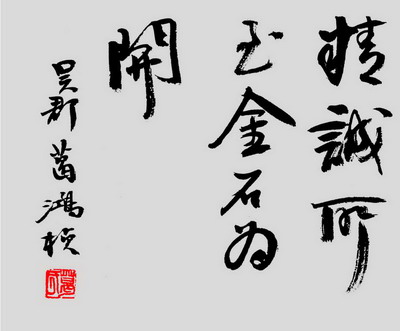 精誠所
至金石為
開
吳郡葛鴻楨